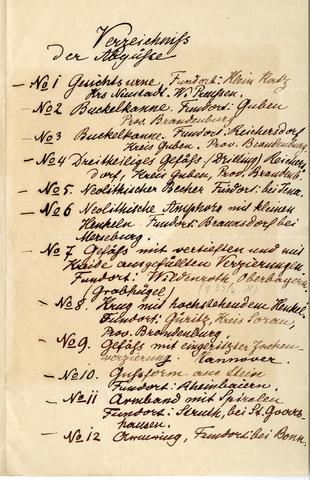 Verzeichniss
der Abgüsse
- No 1 Gesichtsurne, Fundort: Klein Katz
Krs Neustadt. W. Preußen.
- No 2 Buckelkanne. Fundort: Guben
Prov. Brandenburg
- No 3 Buckelkanne. Fundort Reichersdorf
Kreis Guben. Prov. Brandenburg.
- No 4 Dreitheiliges Gefäß (Drilling) Reichers
dorf, Kreis Guben, Prov. Brandenb.
- No 5. Neolithischer Becher Fundort: bei Jena.
- No 6 Neolithische Amphora mit kleinen
Henkeln Fundort: Braunsdorf bei
Merseburg.
- No 7 Gefäß mit vertieften und mit
Kreide ausgefüllten Verzierungen.
Fundort: Wildenroth, Oberbayern
(Grabhügel)
- No 8. Krug mit hochstehendem Henkel.
Fundort: Kreis Sorau,
Prov. Brandenburg
- No 9. Gefäß mit eingeritzter Zacken-
verzierung. Hannover.
- No 10. Gussform aus Stein
Fundort: Rheinbaiern.
- No 11 Armband mit Spiralen
Fundort: Struth, bei St. Goars-
hausen.
- No 12 Armring, Fundort: bei Bonn.